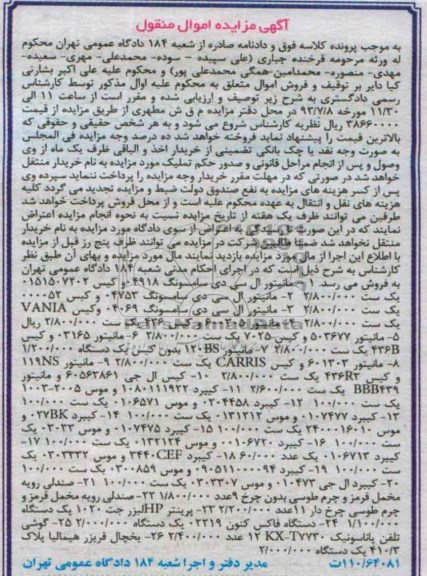 آگهی مزایده اموال منقول
به موجب پرونده کلاسه فوق و دادنامه صادره از شعبه ۱۸۴ دادگاه عمومی تهران محکوم
له ورثه مرحومه فرخنده جباری (علی سپیده - سوده- محمدعلی- مهری- سعیده-
مهدی- منصوره- محمدامین-همگی محمدعلی پور) و محکوم علیه علی اکبر بشارتی
کیا دایر بر توقیف و فروش اموال متعلق به محکوم علیه اوال مذکور توسط کارشناس
رسمی دادگستری به شرح زیر توصیف و ارزیابی شده و مقرر است از ساعت ۱۱ الی
۱۱/۳۰ مورخه ۹۳/۷/۸ در محل دفتر مزایده م ق ش مطهری از طریق مزایده از قیمت
۳۸۶۶۰۰۰۰ ریال نظریه کارشناس شروع می شود و به هر شخص حقیقی و حقوقی که
بالاترین قیمت را پیشنهاد نماید فروخته خواهد شد ده درصد وجه مزایده فی المجلس
به صورت وجه نقد یا چک بانکی تضمینی از خریدار اخذ و الباقی ظرف یک ماه از وی
وصول و پس از انجام مراحل قانونی و صدور حکم تملیک مورد مزایده به نام خریدار منتقل
خواهد شد در صورتی که در مهلت مقرر خریدار وجه مزایده را پرداخت ننماید سپرده وی
پس از کسر هزینه های مزایده به نفع صندوق دولت ضبط و مزایده تجدید می گردد کلیه
هزینه های نقل و انتقال به عهده محکوم علیه است و از محل فروش پرداخت خواهد شد
طرفین می توانند ظرف یک هفته از تاریخ مزایده نسبت به نحوه انجام مزایده اعتراض
نمایند که در این صورت تا رسیدگی به اعتراض از سوی دادگاه مورد مزایده به نام خریدار
منتقل نخواهد شد ضمنا طالبین شرکت در مزایده می توانند ظرف پنج روز قبل از مزایده
با اطلاع این اجرا از مال مورد مزایده بازدید نمایند مال مورد مزایده و بهای آن طبق نظر
کارشناس به شرح ذیل است که در اجرای احکام مدنی شعبه ۱۸۴ دادگاه عمومی تهران
به فروش می رسد. ۱- مانیتور ال سی دی سامسونگ ۰۴۹۱۸ و کیس ۰۱۵۱۵۰۷۳۰۲
یک ست ۲/۸۰۰/۰۰۰ ۲- مانیتور ال سی دی سامسونگ ۰۴۷۵۳ و کیس ۰۰۰۰۵۲
یک ست ۲/۸۰۰/۰۰۰ ۳- مانیتور ال سی دی سامسونگ ۰۴۰۶۹ وکیس VANIA
یک ست ۲/۸۰۰/۰۰۰ ۴- مانیتور یک ست ۲/۸۰۰/۰۰۰ ریال
۵- مانیتور ۵۰۳۶۷۷ و کیس ۷۰۲۵ یک ست ۲/۸۰۰/۰۰۰ ۶- مانیتور ۰۳۱۶۵ و کیس
۴۳۶B یک ست ۲/۸۰۰/۰۰۰ ۷- مانیتور ۱۲۰BS بدون کیس یک دستگاه ۱/۲۰۰/۰۰۰
۸- مانیتور ۶۰۱۳۰۳ و کیس CARRIS یک ست ۲/۸۰۰/۰۰۰ ۹- مانیتور ۱۱۹NS
و کیس ۴۳۶R۳ یک ست ۲/۸۰۰/۰۰۰ ۱۰- کیس ال جی ۶۰۵۶۳۸۶۱ و مانیتور
BBB۴۳۹ یک ست ۲/۶۰۰/۰۰۰ ۱۱- کیبرد ۱۰۸۰۱۱۱۹۲۲ و موس ۲۰۰۵-۱۰۰۳
یک ست ۱۰۰/۰۰۰ ۱۲- کیبرد ۰۳۰۴۴۵۸ و موس ۱۰۶۵۷۱ یک ست ۱۰۰/۰۰۰
۱۳- کیبرد ۰۱۰۷۴۷۷ و موس ۱۳۱۲۱۲ یک ست ۱۰۰/۰۰۰ ۱۴- کیبرد ۰۲۷BK
موس ۲۴۰۰۰۱۶۰۱۰ یک ست ۱۰۰/۰۰۰ ۱۵- کیبرد ۰۱۰۷۴۷۵ و موس ۰۳۰۳۳ یک
ست ۱۰۰/۰۰۰ ۱۶- کیبرد ۰۰۱۰۶۷۲۰ و موس ۱۳۲۱۲۴ یک ست ۱۰۰/۰۰۰ ۱۷-
کیبرد ۰۱۰۶۷۱۳ یک عدد ۶۰/۰۰۰ ۱۸- کیبرد ۳۴۴۰CEF و موس ۳۰۳۳۳۲ یک
ست ۱۰۰/۰۰۰ ۱۹- کیبرد ۰۹۰۵۱۱۰۰۰۰۹۴ و موس ۳۰۰۸۵۹ یک ست ۱۰۰/۰۰۰
۲۰- کیبرد ال جی ۰۱۰۴۷۳ و موس ۰۳۰۳۳۰۷ یک ست ۱۰۰/۰۰۰ ۲۱- صندلی رویه
مخمل قرمز و چرم طوسی بدون چرخ ۹عدد ۱/۸۰۰/۰۰۰ ۲۲-صندلی رویه مخمل قرمز و
چرم طوسی چرخ دار ۱۱عدد ۲/۲۰۰/۰۰۰ ۲۳- پرینتر HPلیزر جت ۱۰۲۰ یک دستگاه
۱/۱۰۰/۰۰۰ ۲۴- دستگاه فاکس کنون ۰۲۲۱۹ یک دستگاه ۲/۰۰۰/۰۰۰ ۲۵- گوشی
تلفن پاناسونیک KX-T۷۷۳۰ ۱۲ عدد ۲/۴۰۰/۰۰۰ ۲۶- یخچال فریزر هیمالیا پلاک
۴۱۰/۳ یک دستگاه ۲/۰۰۰/۰۰۰
۱۱۰/۶۴۰۸۱ت مدیر دفتر و اجرا شعبه ۱۸۴ دادگاه عمومی تهران